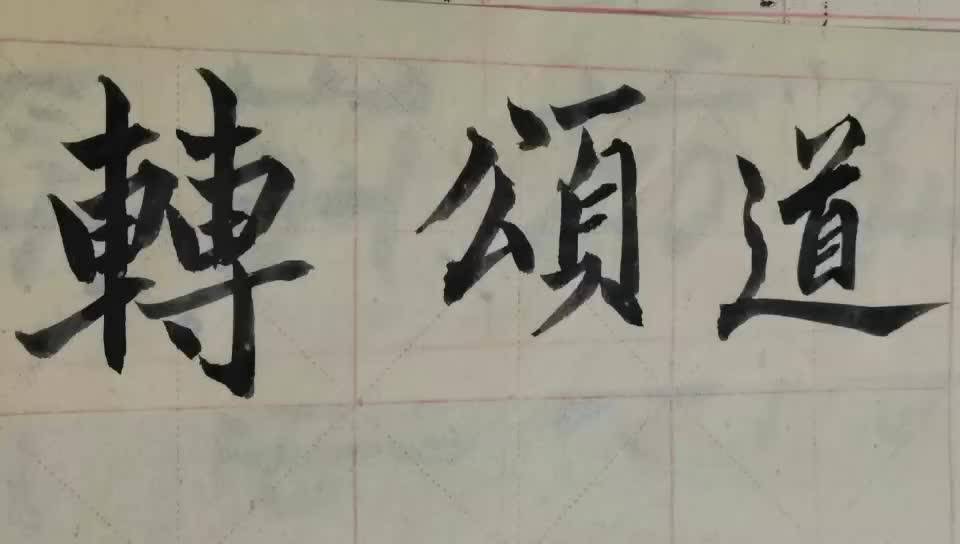 轉頌道